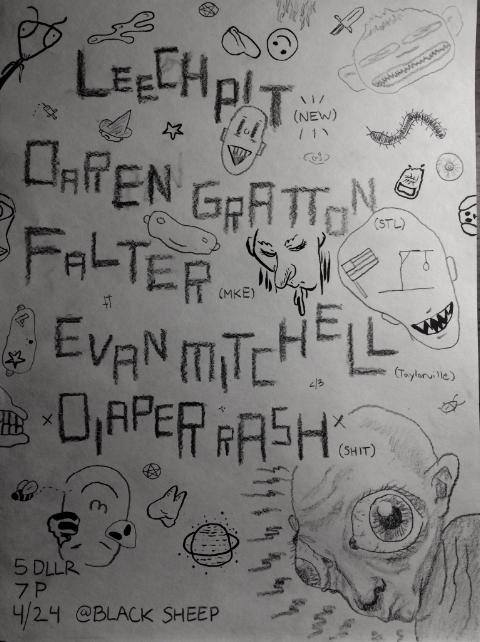 LEECHPIT
(NEW)
DAREN GRATTON
(STL)
FALTER
(MKE)
EVAN MITCHELL
(Taylorville)
x DIAPER RASH x
(SHIT)
5 DLLR
7 P
4/24 @BLACK SHEEP